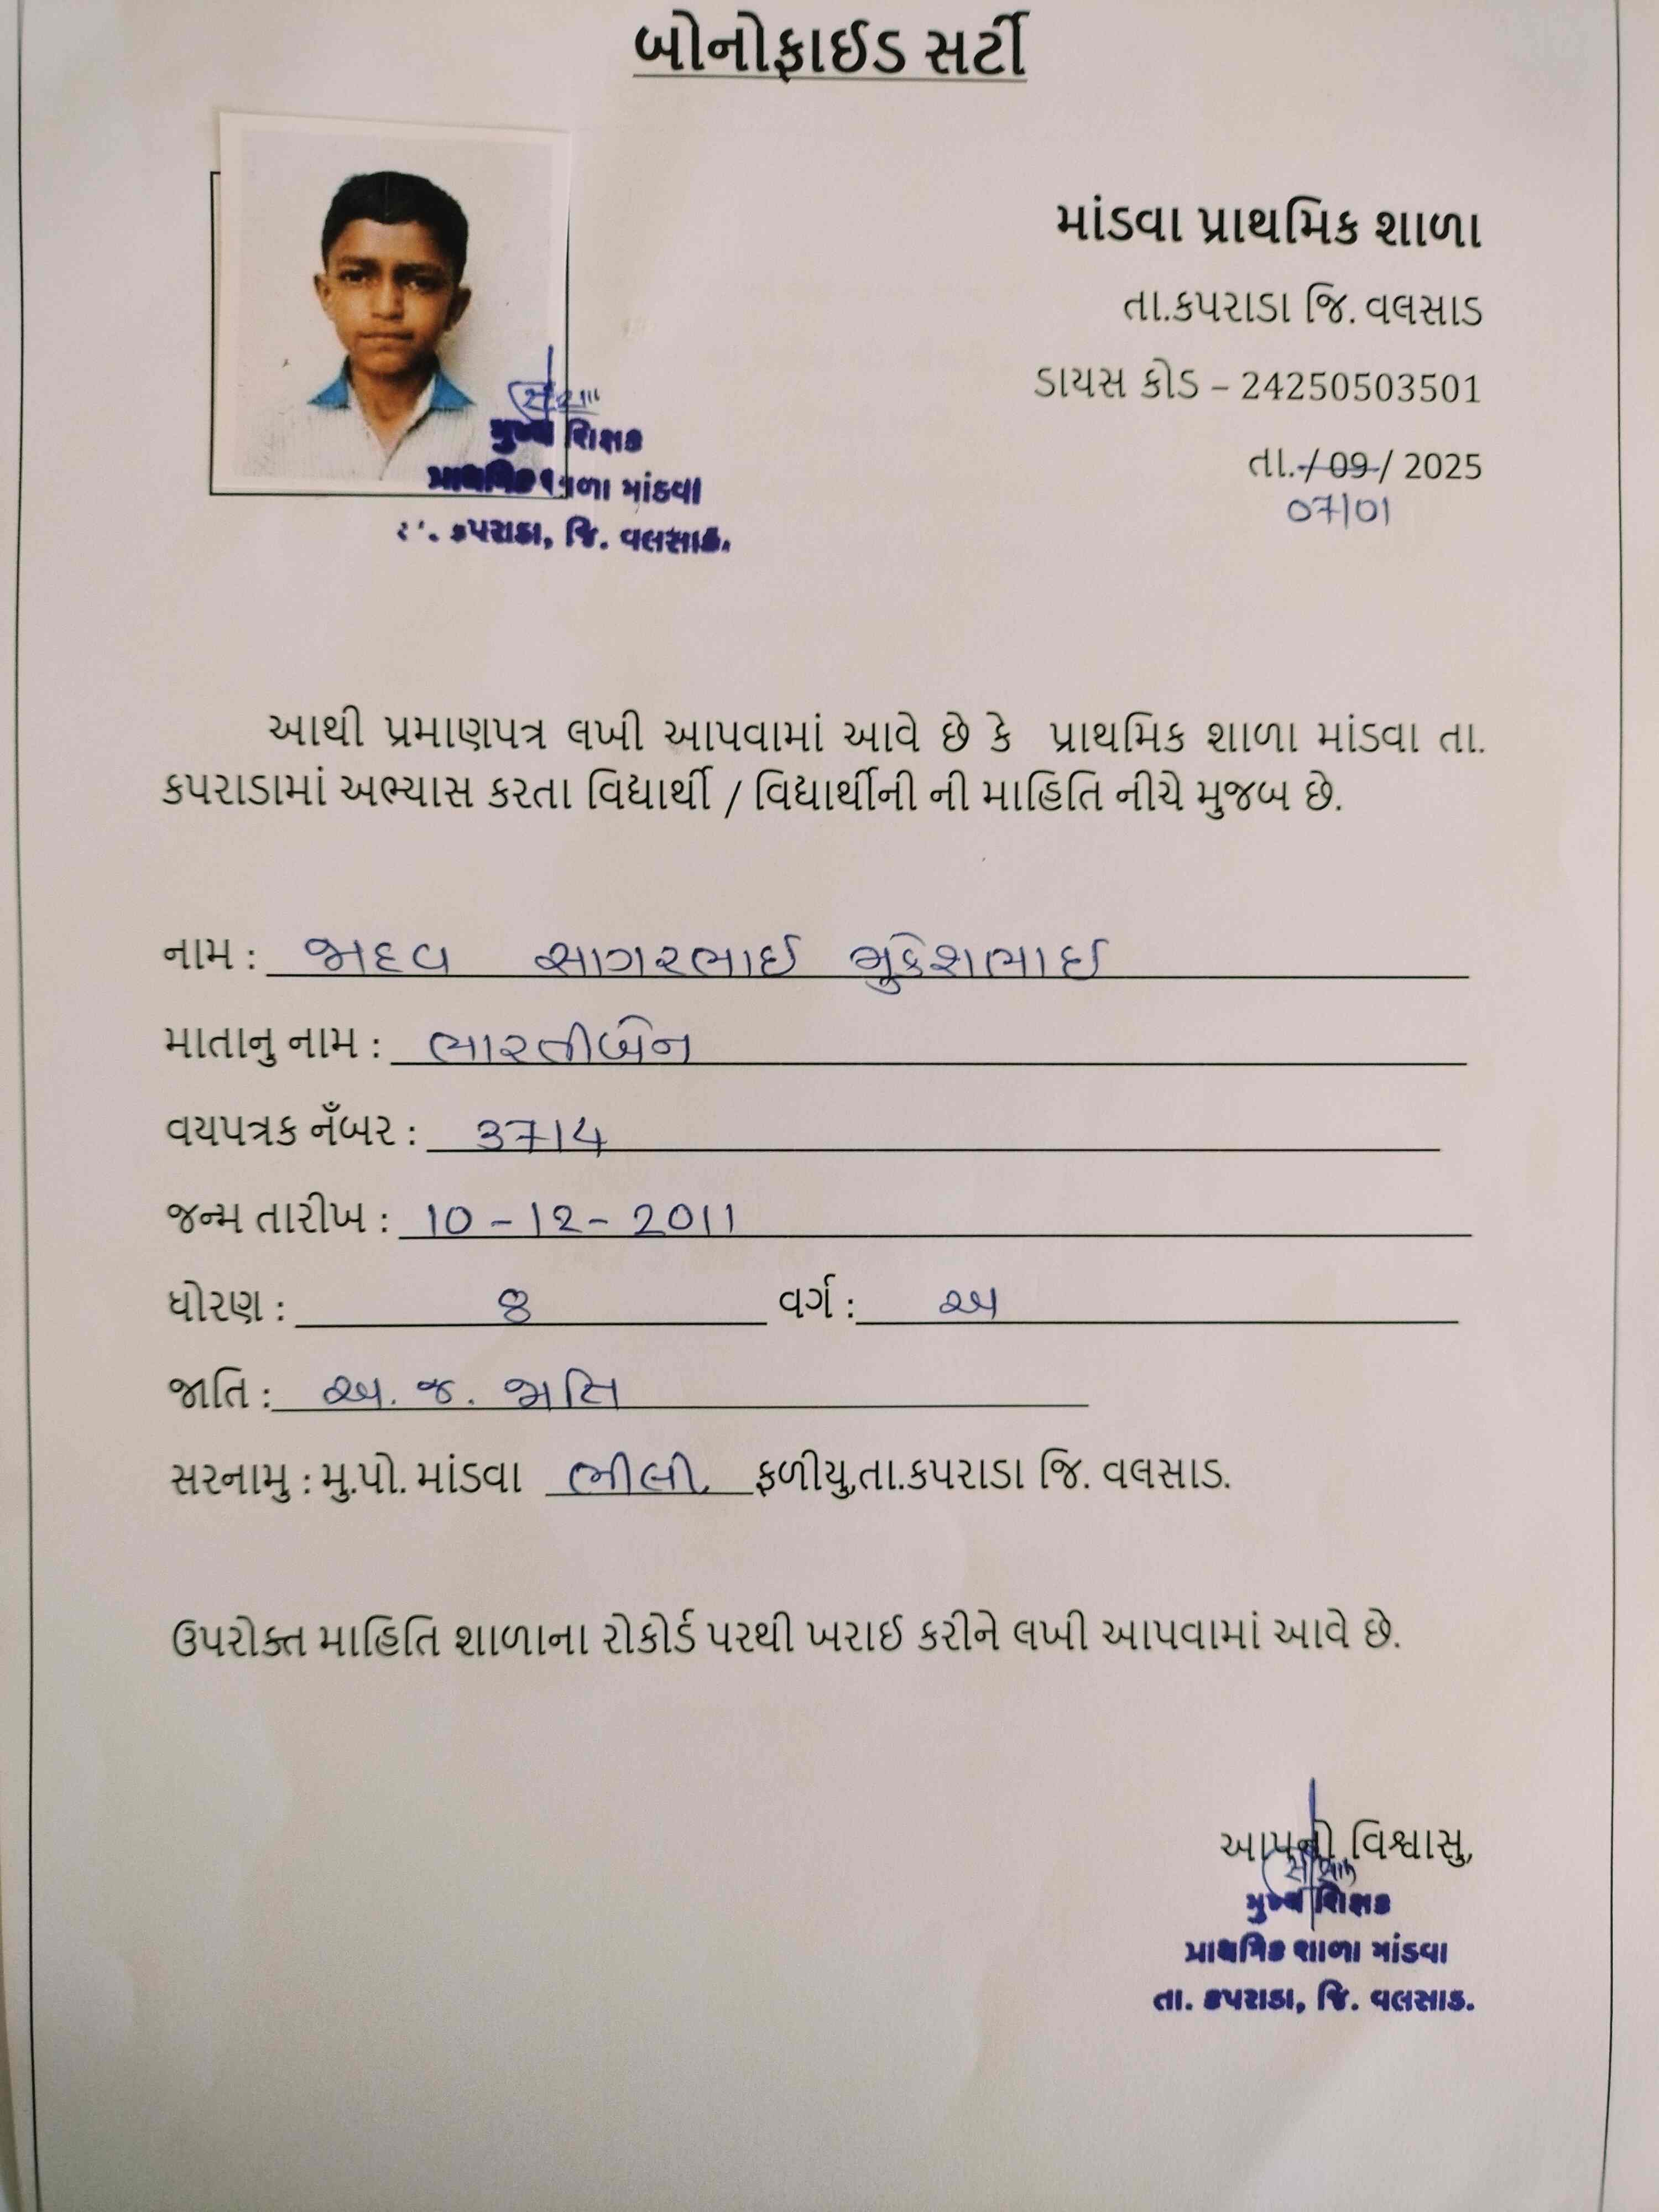 બોનોફાઈડ સર્ટી
માંડવા પ્રાથમિક શાળા
તા.કપરાડા જિ. વલસાડ
ડાયસ કોડ – 24250503501
તા.-/-09-/ 2025
07/01
મુખ્ય શિક્ષક
પ્રાથમિક શાળા માંડવા
કપરાડા, જિ. વલસાડ.
આથી પ્રમાણપત્ર લખી આપવામાં આવે છે કે પ્રાથમિક શાળા માંડવા તા.
કપરાડામાં અભ્યાસ કરતા વિદ્યાર્થી / વિદ્યાર્થીની ની માહિતિ નીચે મુજબ છે.
નામ : જાદવ સાગરભાઈ મુકેશભાઈ
માતાનુ નામ : ભારતીબેન
વયપત્રક નઁબર : 3714
જન્મ તારીખ : 10 - 12 - 2011
ધોરણ : 8 વર્ગ : અ
જાતિ : અ. જ. જાતિ
સરનામુ : મુ.પો. માંડવા ભીલી ફળીયુ,તા.કપરાડા જિ. વલસાડ.
ઉપરોક્ત માહિતિ શાળાના રોકોર્ડ પરથી ખરાઈ કરીને લખી આપવામાં આવે છે.
આપનો વિશ્વાસુ,
મુખ્ય શિક્ષક
પ્રાથમિક શાળા માંડવા
તા. કપરાડા, જિ. વલસાડ.